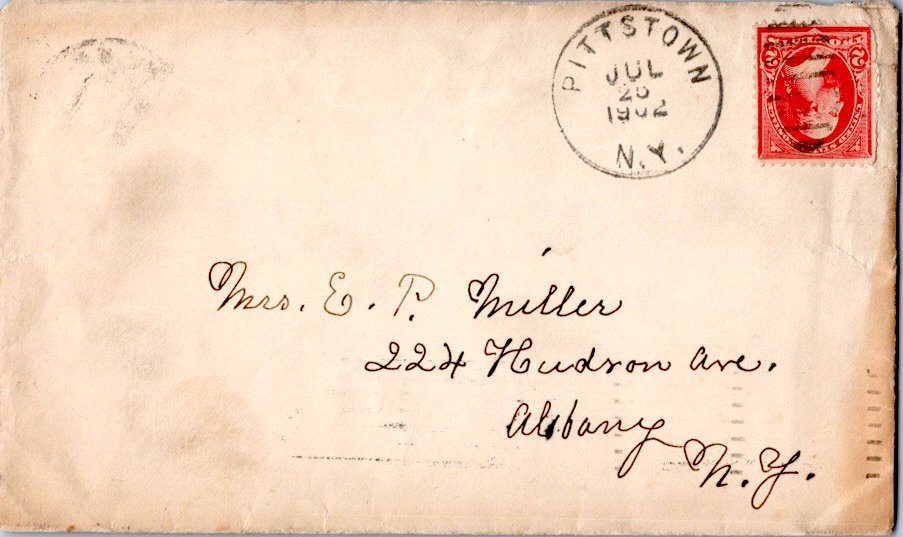 PITTSTOWN
JUL
1902
N.Y.
Mrs. E. P. Miller
224 Hudson Ave.
Albany
N.Y.